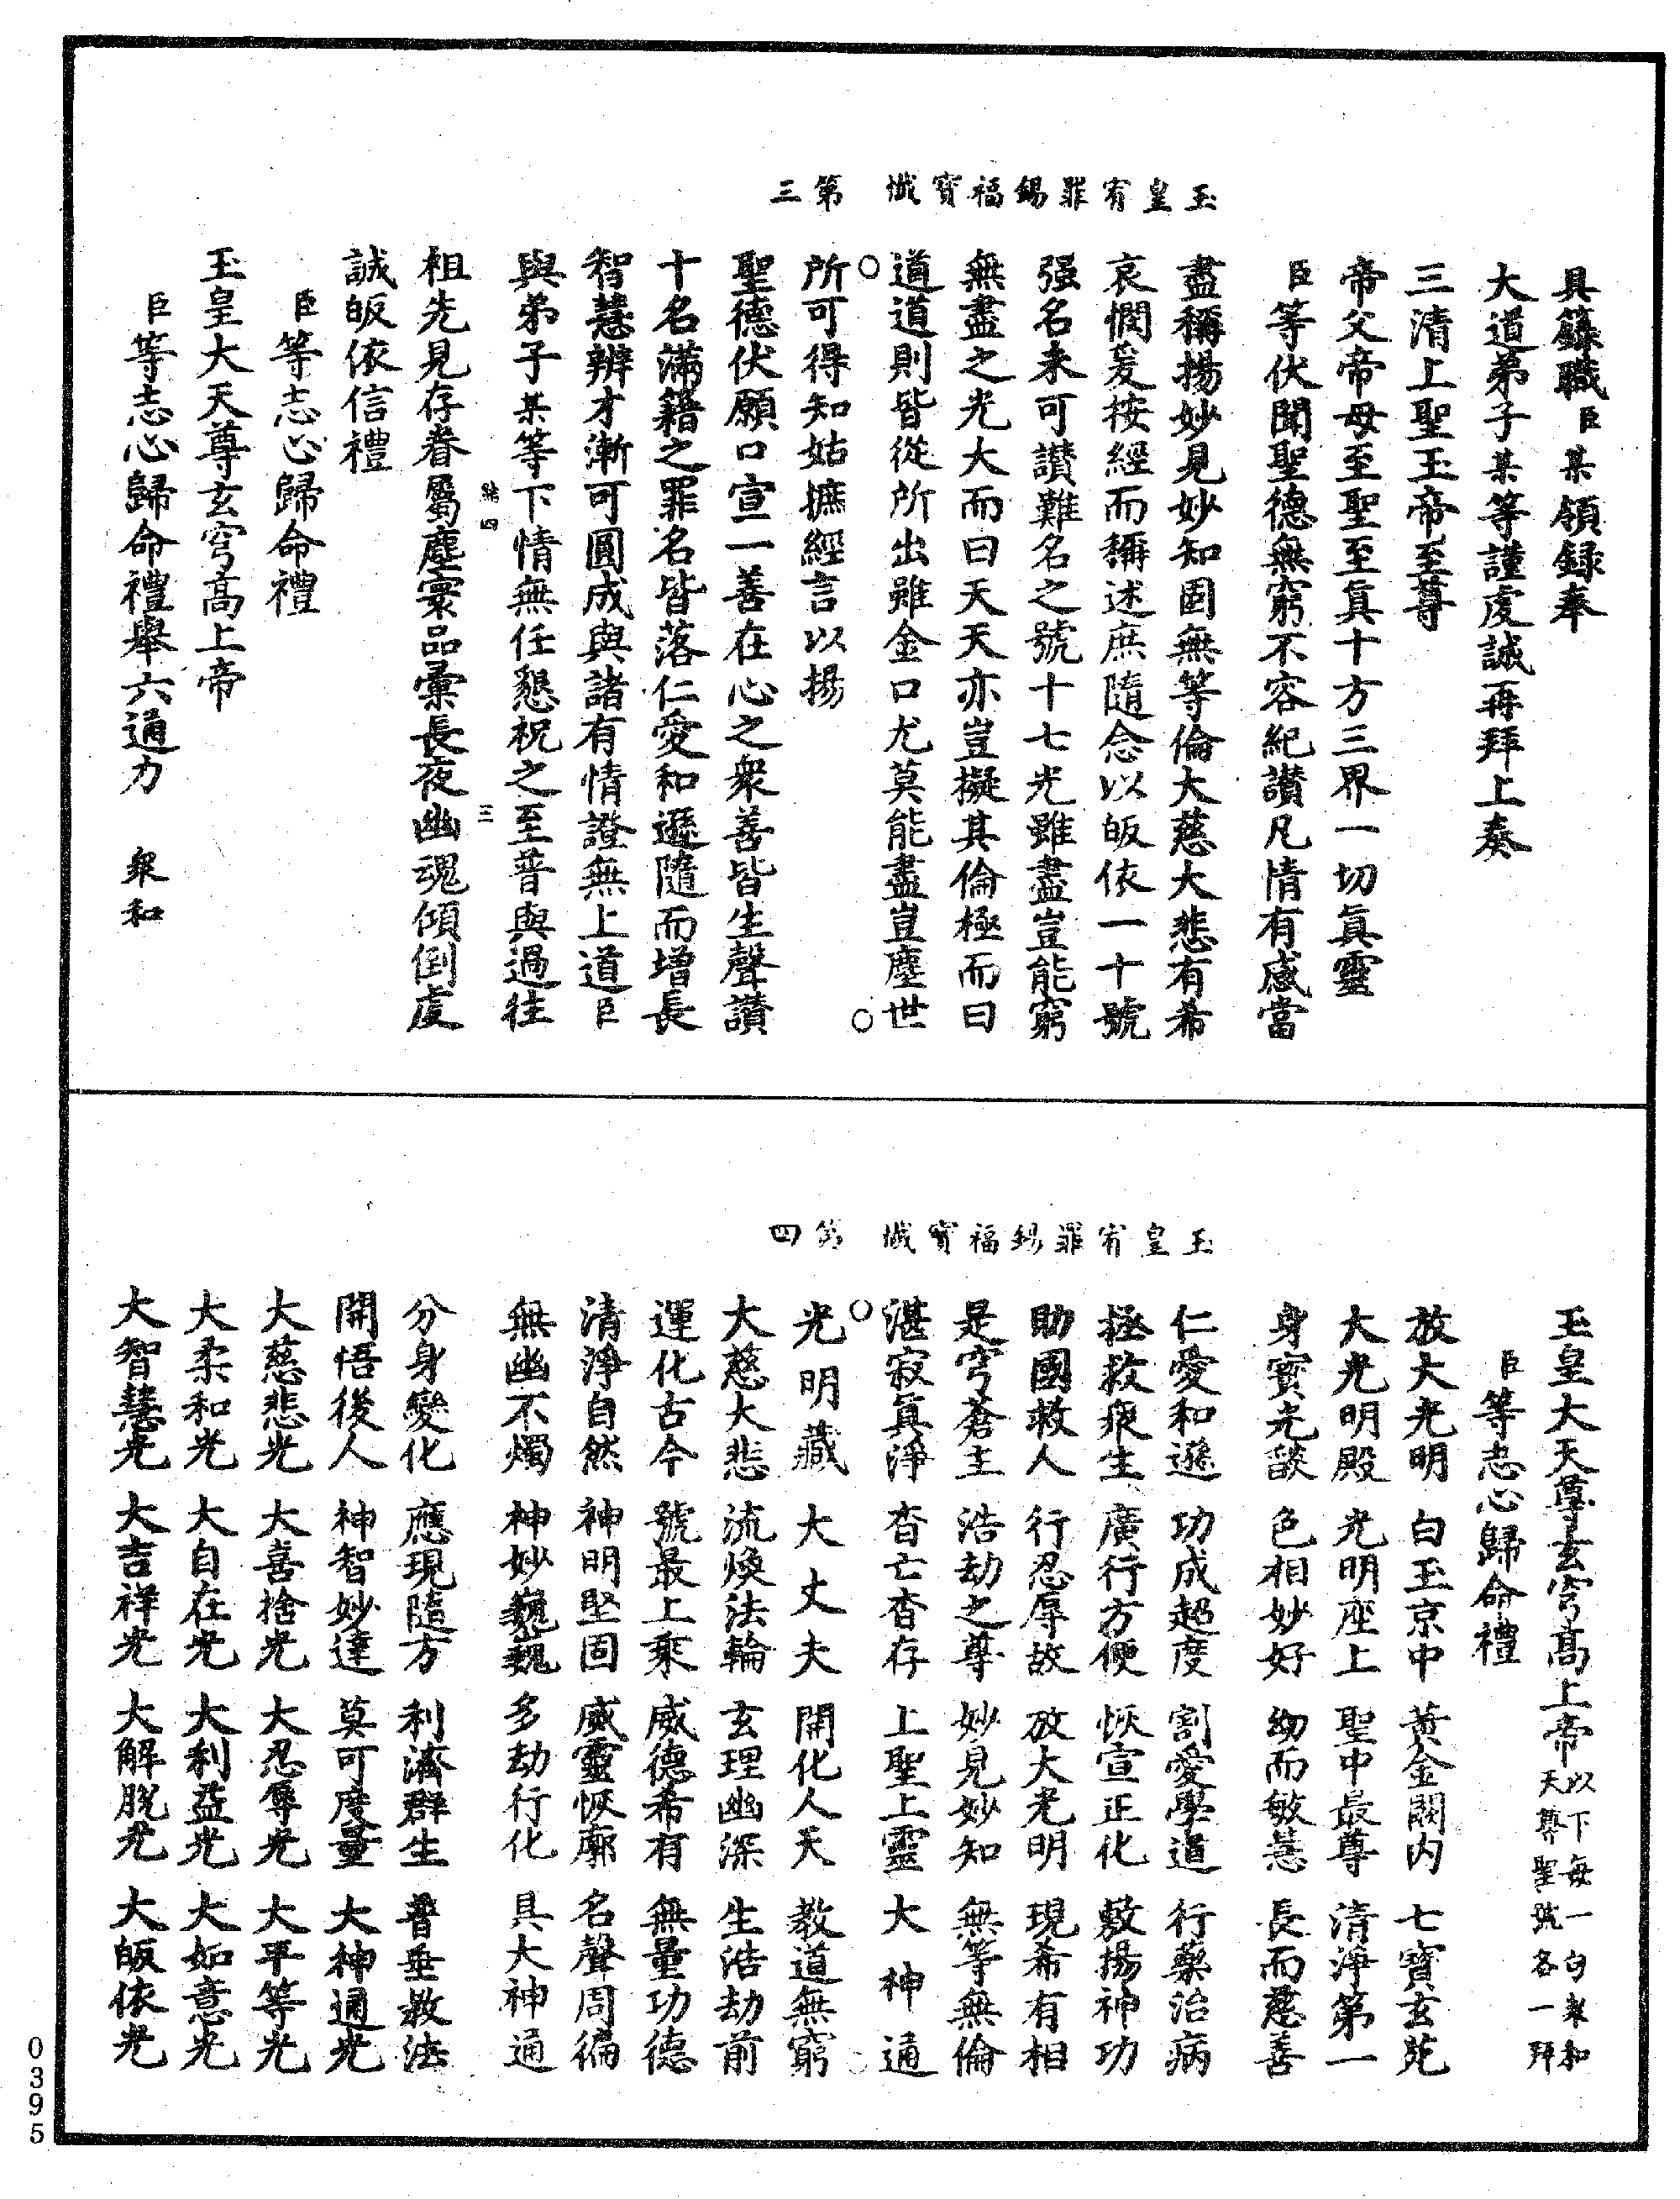 玉皇宥罪錫福寶懺　第三
具籙職臣某領録奉
大道弟子某等謹虔誠再拜上奏
三清上聖玉帝至尊
帝父帝母至聖至眞十方三界一切眞靈
臣等伏聞聖德無窮不容紀讃凡情有感當
盡稱揚妙見妙知固無等倫大慈大悲有希
哀憫爰按經而稱述庶隨念以皈依一十號
强名未可讃難名之號十七光雖盡豈能窮
無盡之光大而曰天天亦豈擬其倫極而曰
道道則皆從所出雖金口尤莫能盡豈塵世
所可得知姑摭經言以揚
聖德伏願口宣一善在心之衆善皆生聲讃
十名滿籍之罪名皆落仁愛和遜隨而增長
智慧辨才漸可圓成與諸有情證無上道臣
與弟子某等下情無任懇祝之至普與過往
祖先見存眷屬塵寰品彙長夜幽魂傾倒虔
誠皈依信禮
臣等志心歸命禮
玉皇大天尊玄穹高上帝
臣等志心歸命禮舉六通力　衆和
玉皇宥罪錫福寶懺　第四
玉皇大天尊玄穹高上帝以下每一句衆和天尊聖號各一拜
臣等志心歸命禮
放大光明　白玉京中　黃金闕内　七寶玄苑
大光明殿　光明座上　聖中最尊　清淨第一
身寳光燄　色相妙好　幼而敏慧　長而慈善
仁愛和遜　功成超度　割愛學道　行藥治病
拯救衆生　廣行方便　恢宣正化　敷揚神功
助國救人　行忍辱故　放大光明　現希有相
是穹蒼主　浩劫之尊　妙見妙知　無等無倫
湛寂眞淨　杳亡杳存　上聖上靈　大神通
光明藏　大丈夫　開化人天　教道無窮
大慈大悲　流煥法輪　玄理幽深　生浩劫前
運化古今　號最上乘　威德希有　無量功德
清淨自然　神明堅固　威靈恢廓　名聲周徧
無幽不燭　神妙巍巍　多劫行化　具大神通
分身變化　應現隨方　利濟群生　普垂教法
開悟後人　神智妙達　莫可度量　大神通光
大慈悲光　大喜捨光　大忍辱光　大平等光
大柔和光　大自在光　大利益光　大如意光
大智慧光　大吉祥光　大解脫光　大皈依光
0395